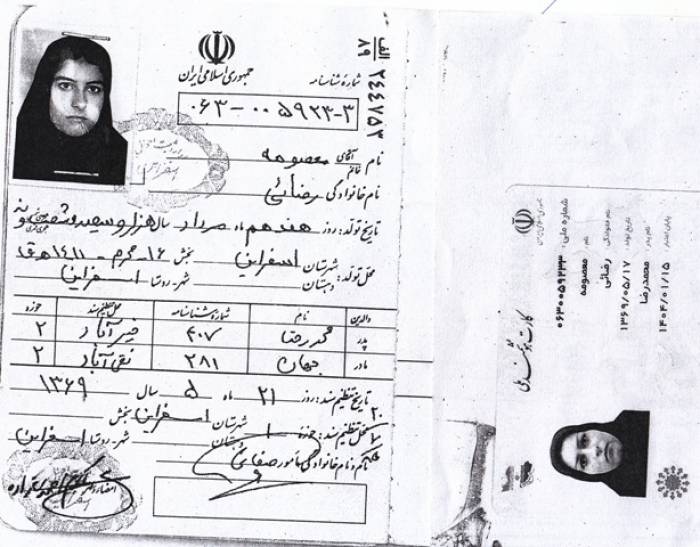 جمهوری اسلامی ایران
شماره شناسنامه
۰۶۳-۰۰۵۹۲۳-۳
الف
۸۹
۲۴۴۷۵۳
نام آقای خانم معصومه
نام خانوادگی رضائی
تاریخ تولد: روز هفدهم ماه مرداد سال هزار و سیصد و شصت و نه
۱۶- محرم - ۱۴۱۱ ه ق
محل تولد: شهرستان اسفراین بخش
دهستان شهر-روستا اسفراین
والدین نام شماره شناسنامه محل تنظیم سند حوزه
پدر محمدرضا ۴۰۷ ۲
مادر جهان ۲۸۱ نقی آباد ۲
تاریخ تنظیم سند: روز ۲۱ ماه ۵ سال ۱۳۶۹
محل تنظیم سند: حوزه ۱ شهرستان اسفراین بخش
دهستان شهر-روستا اسفراین
نام و نام خانوادگی مأمور
جمهوری اسلامی ایران
کارت هوشمند ملی
شماره ملی: ۰۶۳۰۰۵۹۲۳۳
نام: معصومه
نام خانوادگی: رضائی
تاریخ تولد: ۱۳۶۹/۰۵/۱۷
نام پدر: محمدرضا
پایان اعتبار: ۱۴۰۴/۰۱/۱۵